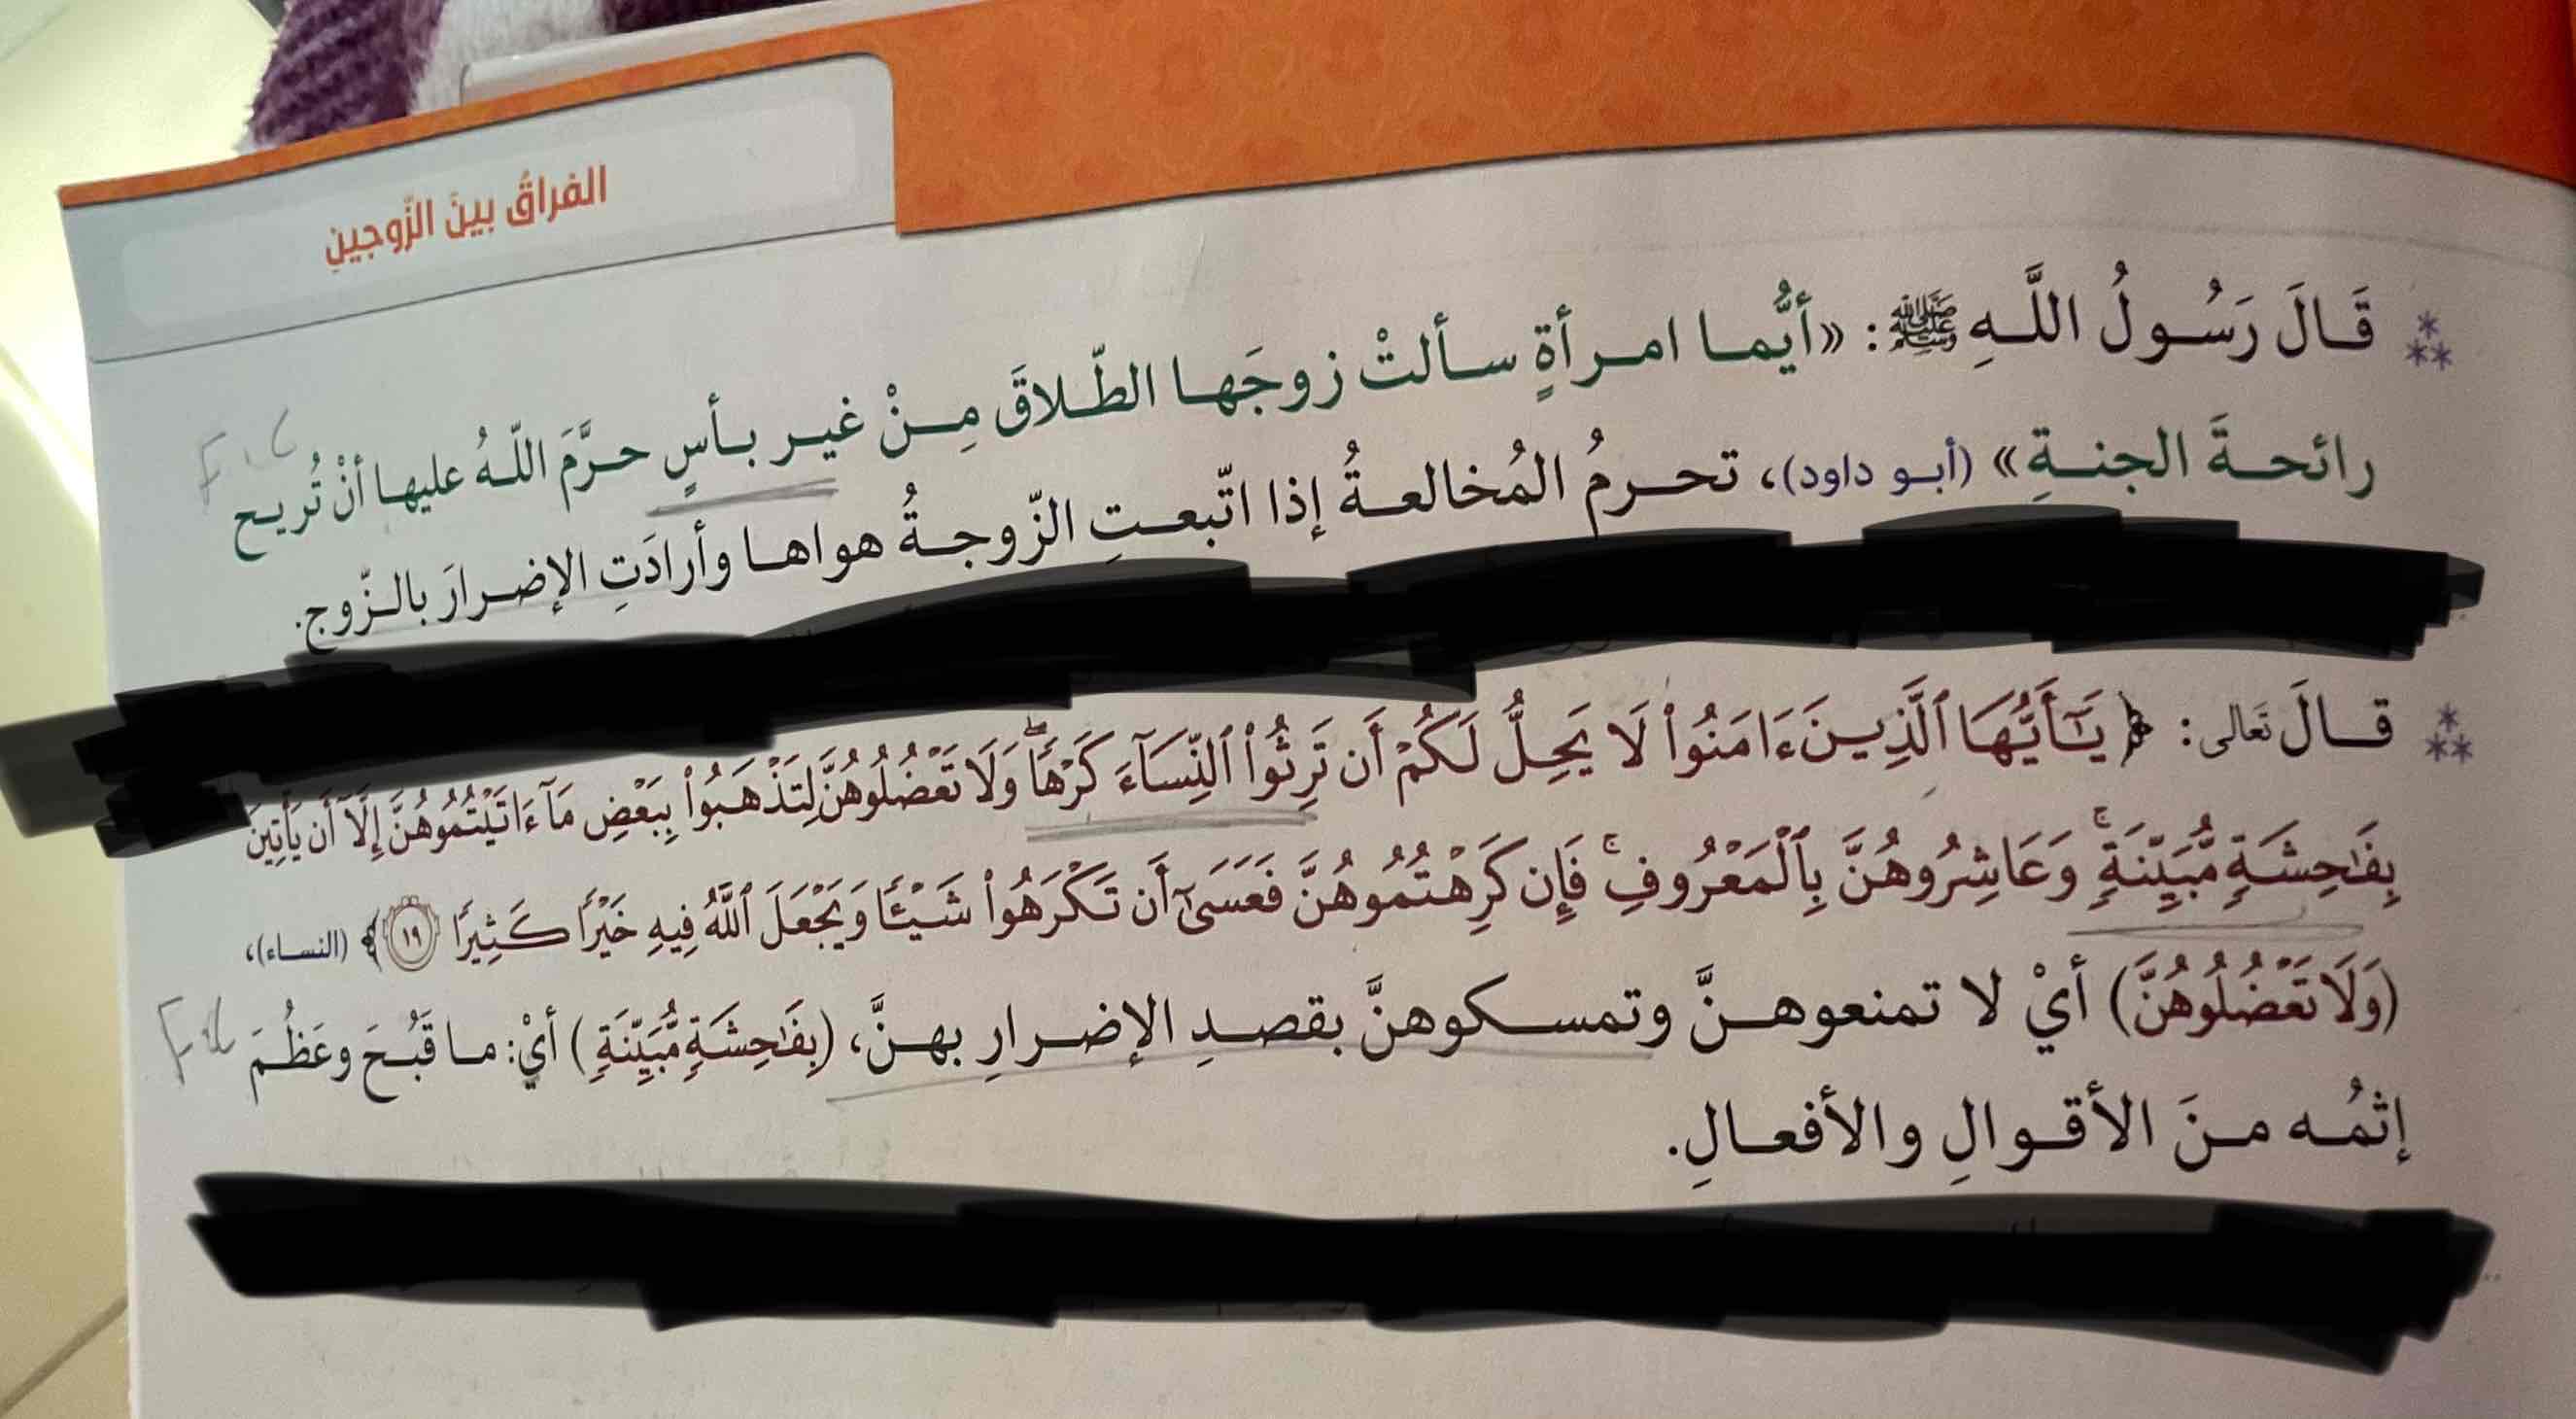 الفراقُ بينَ الزّوجينِ
قَالَ رَسُولُ اللَّهِ ﷺ: «أيُّما امرأةٍ سألتْ زوجَها الطّلاقَ مِنْ غيرِ بأسٍ حرَّمَ اللّهُ عليها أنْ تُريح
رائحةَ الجنةِ» (أبو داود)، تحرمُ المُخالعةُ إذا اتّبعتِ الزّوجةُ هواها وأرادَتِ الإضرارَ بالزّوجِ.
قالَ تَعَالى: ﴿يَٰٓأَيُّهَا ٱلَّذِينَ ءَامَنُوا۟ لَا يَحِلُّ لَكُمْ أَن تَرِثُوا۟ ٱلنِّسَآءَ كَرْهًا ۖ وَلَا تَعْضُلُوهُنَّ لِتَذْهَبُوا۟ بِبَعْضِ مَآ ءَاتَيْتُمُوهُنَّ إِلَّآ أَن يَأْتِينَ
بِفَٰحِشَةٍ مُّبَيِّنَةٍ ۚ وَعَاشِرُوهُنَّ بِٱلْمَعْرُوفِ ۚ فَإِن كَرِهْتُمُوهُنَّ فَعَسَىٰٓ أَن تَكْرَهُوا۟ شَيْـًٔا وَيَجْعَلَ ٱللَّهُ فِيهِ خَيْرًا كَثِيرًا ١٩﴾ (النساء)،
(وَلَا تَعْضُلُوهُنَّ) أيْ لا تمنعوهنَّ وتمسكوهنَّ بقصدِ الإضرارِ بهنَّ، (بِفَٰحِشَةٍ مُّبَيِّنَةٍ) أيْ: ما قَبُحَ وعَظُمَ
إثمُه منَ الأقوالِ والأفعالِ.